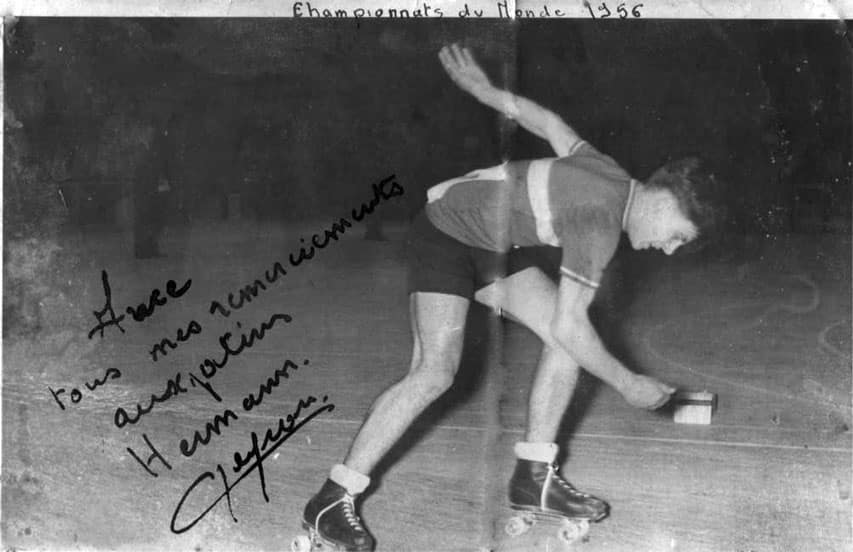 Championnats du Monde 1956
Avec
tous mes remerciements
aux patins
Hermann.